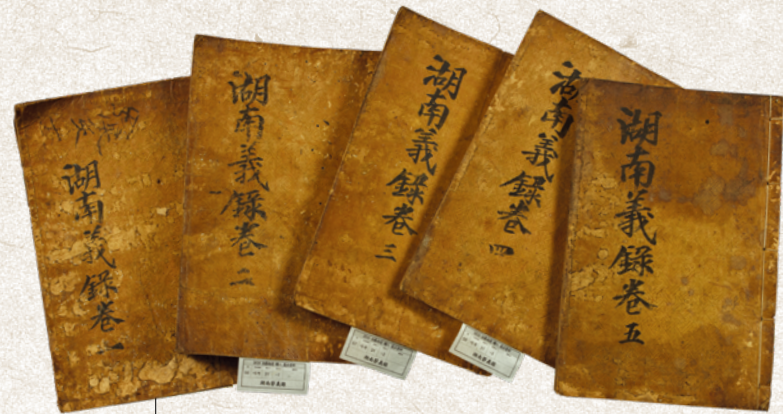 湖南義錄卷一
湖南義錄卷二
湖南義錄卷三
湖南義錄卷四
湖南義錄卷五